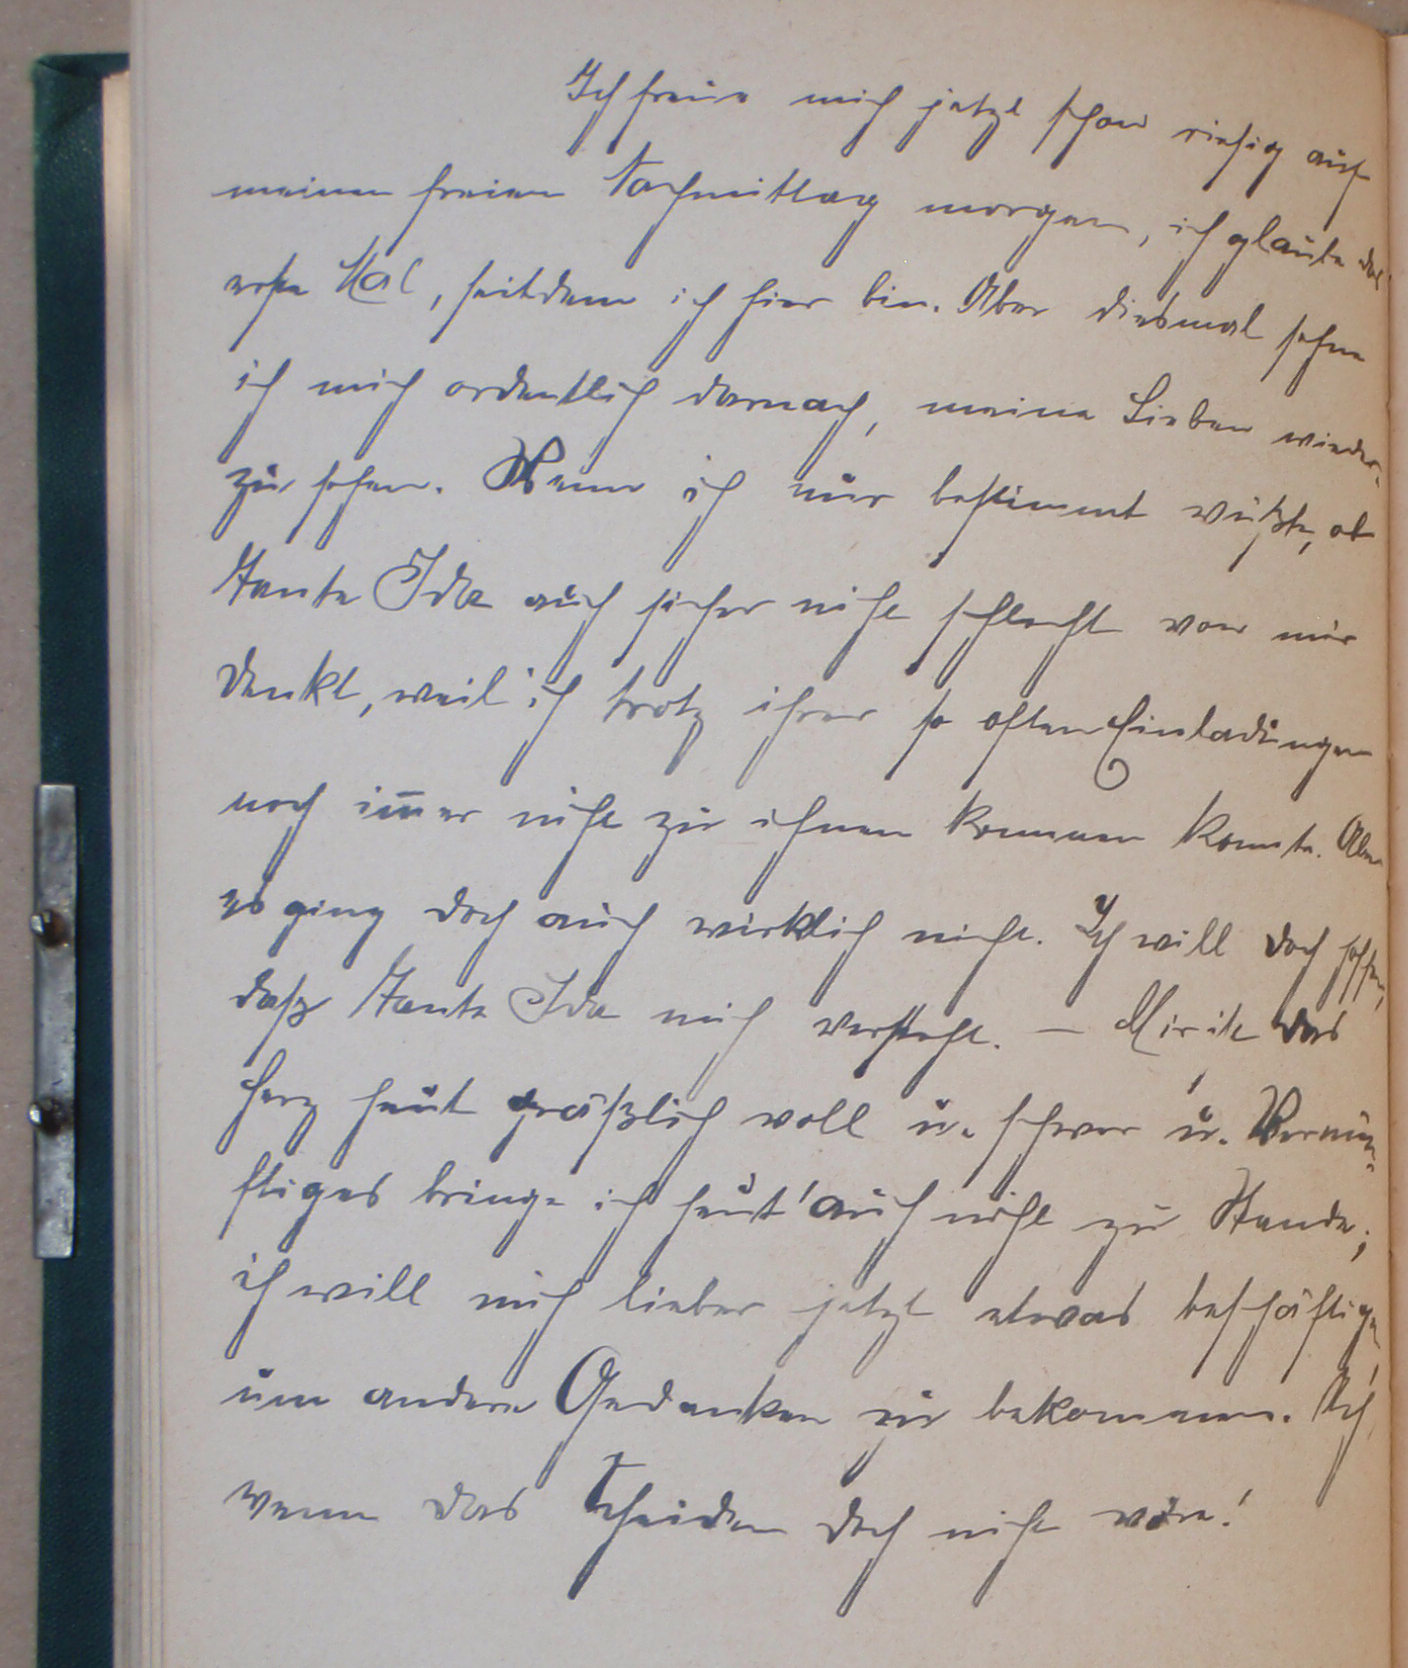 Ich freue mich jetzt schon riesig auf
meinen freien Nachmittag morgen, ich glaube das
erste Mal, seitdem ich hier bin. Aber diesmal sehne
ich mich ordentlich darnach, meine Lieben wieder-
zusehen. Wenn ich nur bestimmt wüßte, ob
Tante Ida auch sicher nicht schlecht von mir
denkt, weil ich trotz ihrer so often Einladungen
noch im̅er nicht zu ihnen kommen konnte. Aber
es ging doch auch wirklich nicht. Ich will doch hoffen,
daß Tante Ida mich versteht. – Mir ist das
Herz heut gräßlich voll u. schwer u. Vernün-
ftiges bringe ich heut' auch nicht zu Stande;
ich will mich lieber jetzt etwas beschäftigen
um andere Gedanken zu bekommen. Ach,
wenn das Scheiden doch nicht wäre!